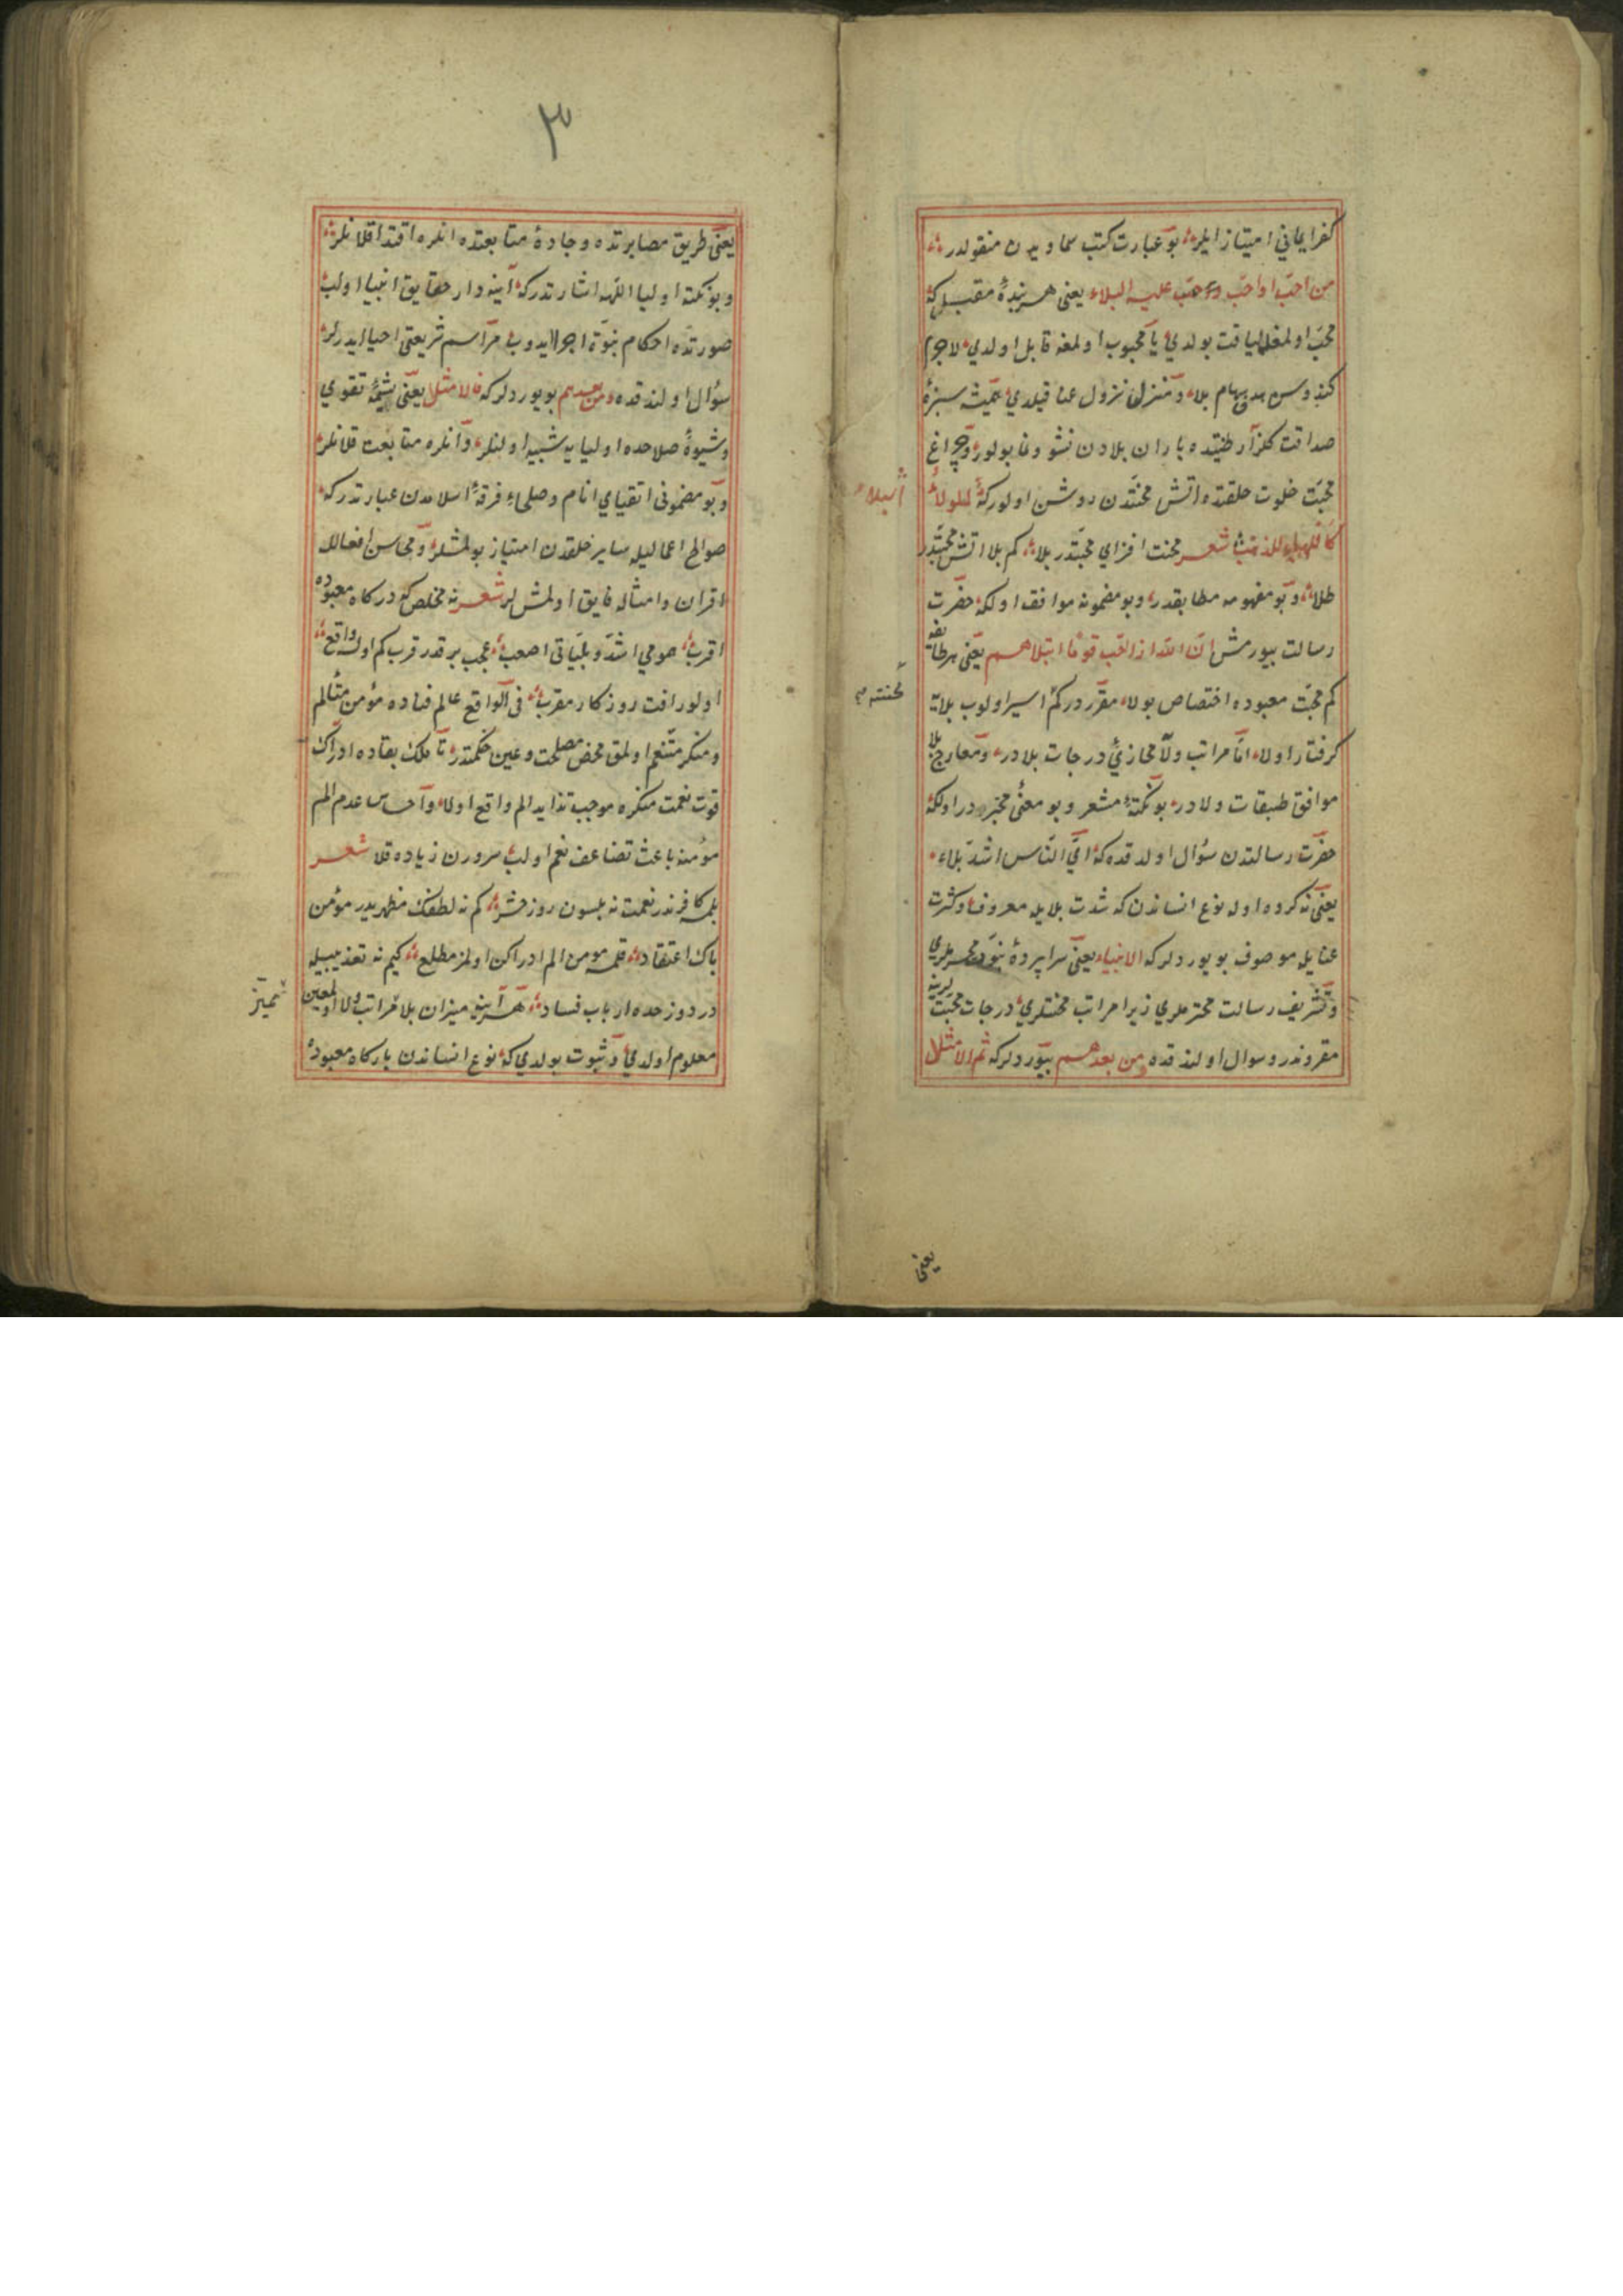 كفر ايماني امتياز ايلر بو عبارت كتب سماويه دن منقولدر
من احبّ او احبّ وحبّ عليه البلاء يعنى هر بندۀ مقبل كه
محبّ اولمغه لياقت بولدي يا محبوب اولمغه قابل اولدي لاجرم
كندوسن هدف سهام بلا و منزل نزول عنا قيلدي سبزۀ
صداقت كلزار طينتده باران بلادن نشو و نما بولور و چراغ
محبّت خلوت خلقتده اتش محنتدن روشن اولور كه البلاء للولاء
كاللهب للذهب شعر محنت افزاي محبّتدر بلا كم بلا اتش محبّتدر
طلا و بو مفهومه مطابقدر و بو مضمونه موافق اولكه حضرت
رسالت بيورمش انّ الله اذا احبّ قوما ابتلاهم يعنى هر طائفه
كم محبّت معبوده اختصاص بولا مقرّردر كم اسير اولوب بلايه
محنته
كرفتار اولا امّا مراتب ولا محازئ درجات بلادر و معارج بلا
موافق طبقات ولادر بو نكتۀ مشعر و بو معنئ مخبردر اولكه
حضرت رسالتدن سؤال اولندقده كه ايّ النّاس اشدّ بلاء
يعنى نه كروه اوله نوع انساندن كه شدت بلايله معروف و كثرت
عنايله موصوف بويورديلر كه الانبياء يعنى سراپردۀ نبوّت محرملري
و تشريف رسالت محترملري زيرا مراتب محنتلري درجات محبّتلرينه
مقروندر و سوال اولندقده من بعدهم بيورديلر كه ثم الامثل
يعنى
٣
يعنى طريق مصابرتده و جادۀ متابعتده انلره اقتدا قلانلر
و بو نكته اولياء اللهه اشارتدر كه آينه دار حقايق انبيا اولب
صورتده احكام نبوّة اجرا ايدوب مراسم شريعتى احيا ايدرلر
سؤال اولندقده و من بعدهم بويورديلر كه فالامثل يعنى شيمۀ تقوي
و شيوۀ صلاحده اوليايه شبيه اولنلر و انلره متابعت قلانلر
و بو مضمونى اتقياي انام و صلحاء فرقۀ اسلامدن عبارتدر كه
صوالح اعماليله ساير خلقدن امتياز بولمشلر و محاسن افعاللا
اقران و امثاله فايق اولمشلر شعر نه مخلص كه دركاه معبوده
اقرب همومي اشدّ و بليّاتى اصعب عجب برقدر قرب كم اوله واقع
اولور افت روزكار مقرب فى الواقع عالم فناده مؤمن متألم
و منكر متنعّم اولمق محض مصلحت و عين حكمتدر تا ملك بقاده ادراك
قوت نعمت منكره موجب تزايد الم واقع اولا و احساس عدم الم
مؤمنه باعث تضاعف نعم اولب سرورن زياده قلا شعر
بلمه كافر ندر نعمت نه بلسون روز حشر كم نه لطفك مظهريدر مؤمن
پاك اعتقاد قلمه مومن الم ادراكن اولمز مطلع كيم نه تعذيبيله
در دوزخده ارباب فساد هر آينه ميزان بلا مراتب ولا اولمغين
مميّز
معلوم اولدي و ثبوت بولدي كه نوع انساندن باركاه معبودۀ